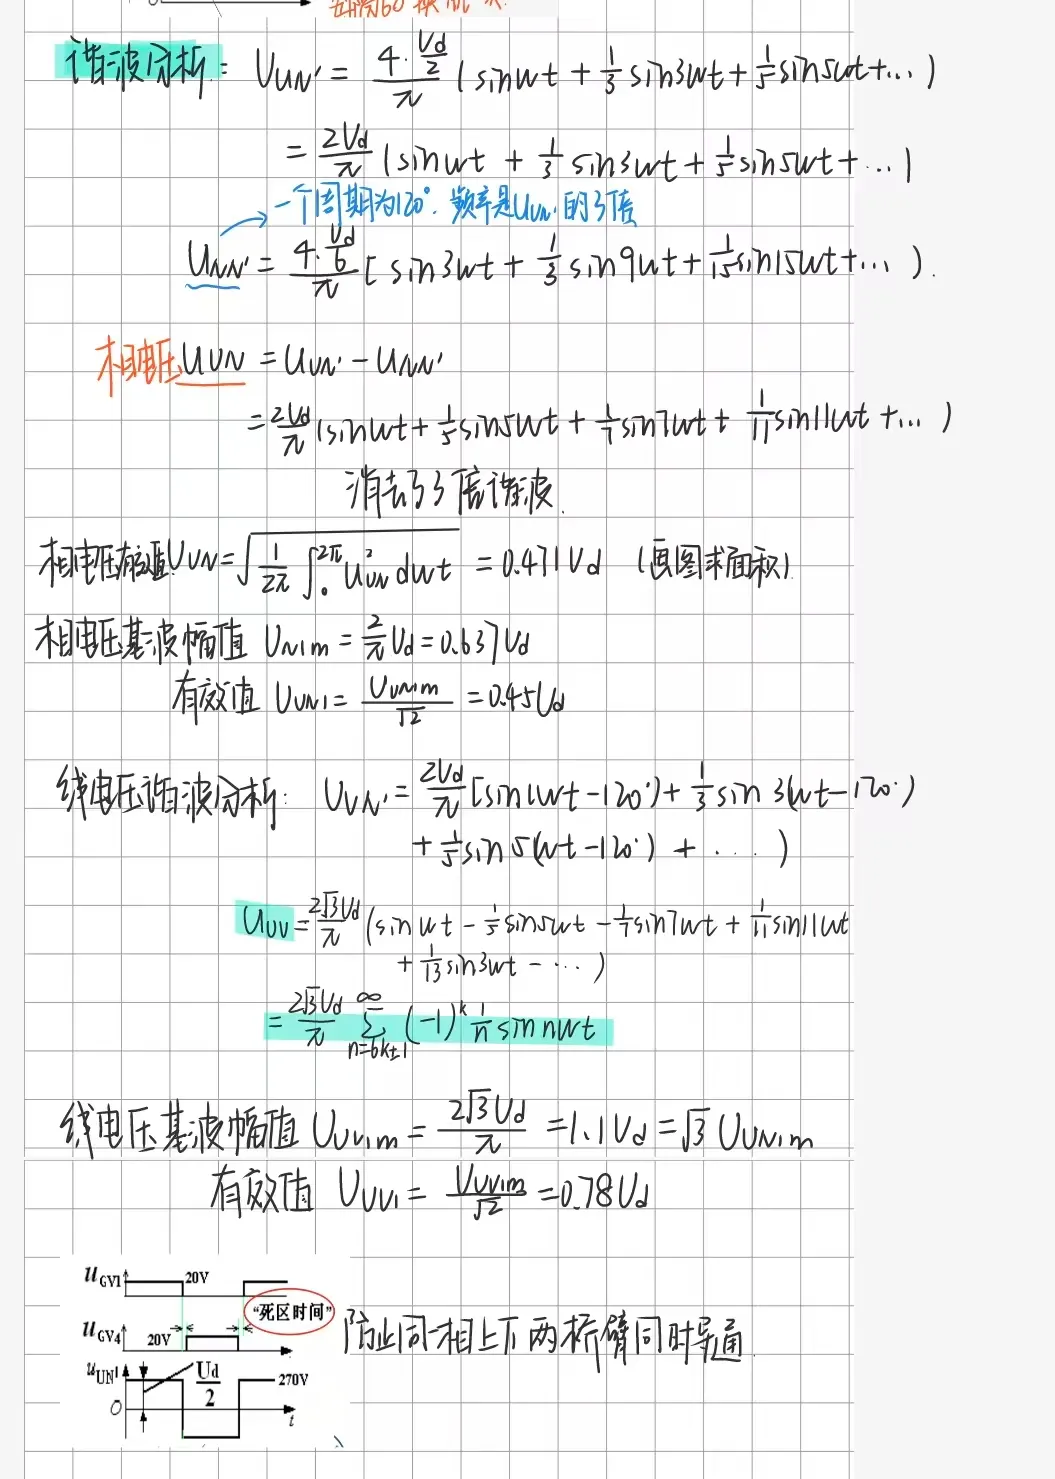 谐波分析: U_UN' = 4·(Ud/2)/π (sinωt + 1/3 sin3ωt + 1/5 sin5ωt + ...)
= 2Ud/π (sinωt + 1/3 sin3ωt + 1/5 sin5ωt + ...)
一个周期为120°, 频率是U_UN'的3倍
U_NN' = 4·(Ud/6)/π [sin3ωt + 1/3 sin9ωt + 1/15 sin15ωt + ...).
相电压 U_UN = U_UN' - U_NN'
= 2Ud/π (sinωt + 1/5 sin5ωt + 1/7 sin7ωt + 1/11 sin11ωt + ...)
消去了3倍谐波.
相电压有效值 U_UN = √(1/2π ∫₀^2π u²_UN dωt) = 0.471Ud (画图求面积)
相电压基波幅值 U_N1m = 2/π Ud = 0.637Ud
有效值 U_UN1 = U_UN1m/√2 = 0.45Ud
线电压谐波分析: U_VN' = 2Ud/π [sin(ωt-120°) + 1/3 sin3(ωt-120°)
+ 1/5 sin5(ωt-120°) + ....)
U_UV = 2√3Ud/π (sinωt - 1/5 sin5ωt - 1/7 sin7ωt + 1/11 sin11ωt
+ 1/13 sin3ωt - ...)
= 2√3Ud/π ∑_{n=6k±1}^∞ (-1)^k 1/n sin nωt
线电压基波幅值 U_UV1m = 2√3Ud/π = 1.1Ud = √3 U_UN1m
有效值 U_UV1 = U_UV1m/√2 = 0.78Ud
u_GV1 20V
"死区时间"
u_GV4 20V
防止同一相上下两桥臂同时导通
u_UN' Ud/2 270V
0 t